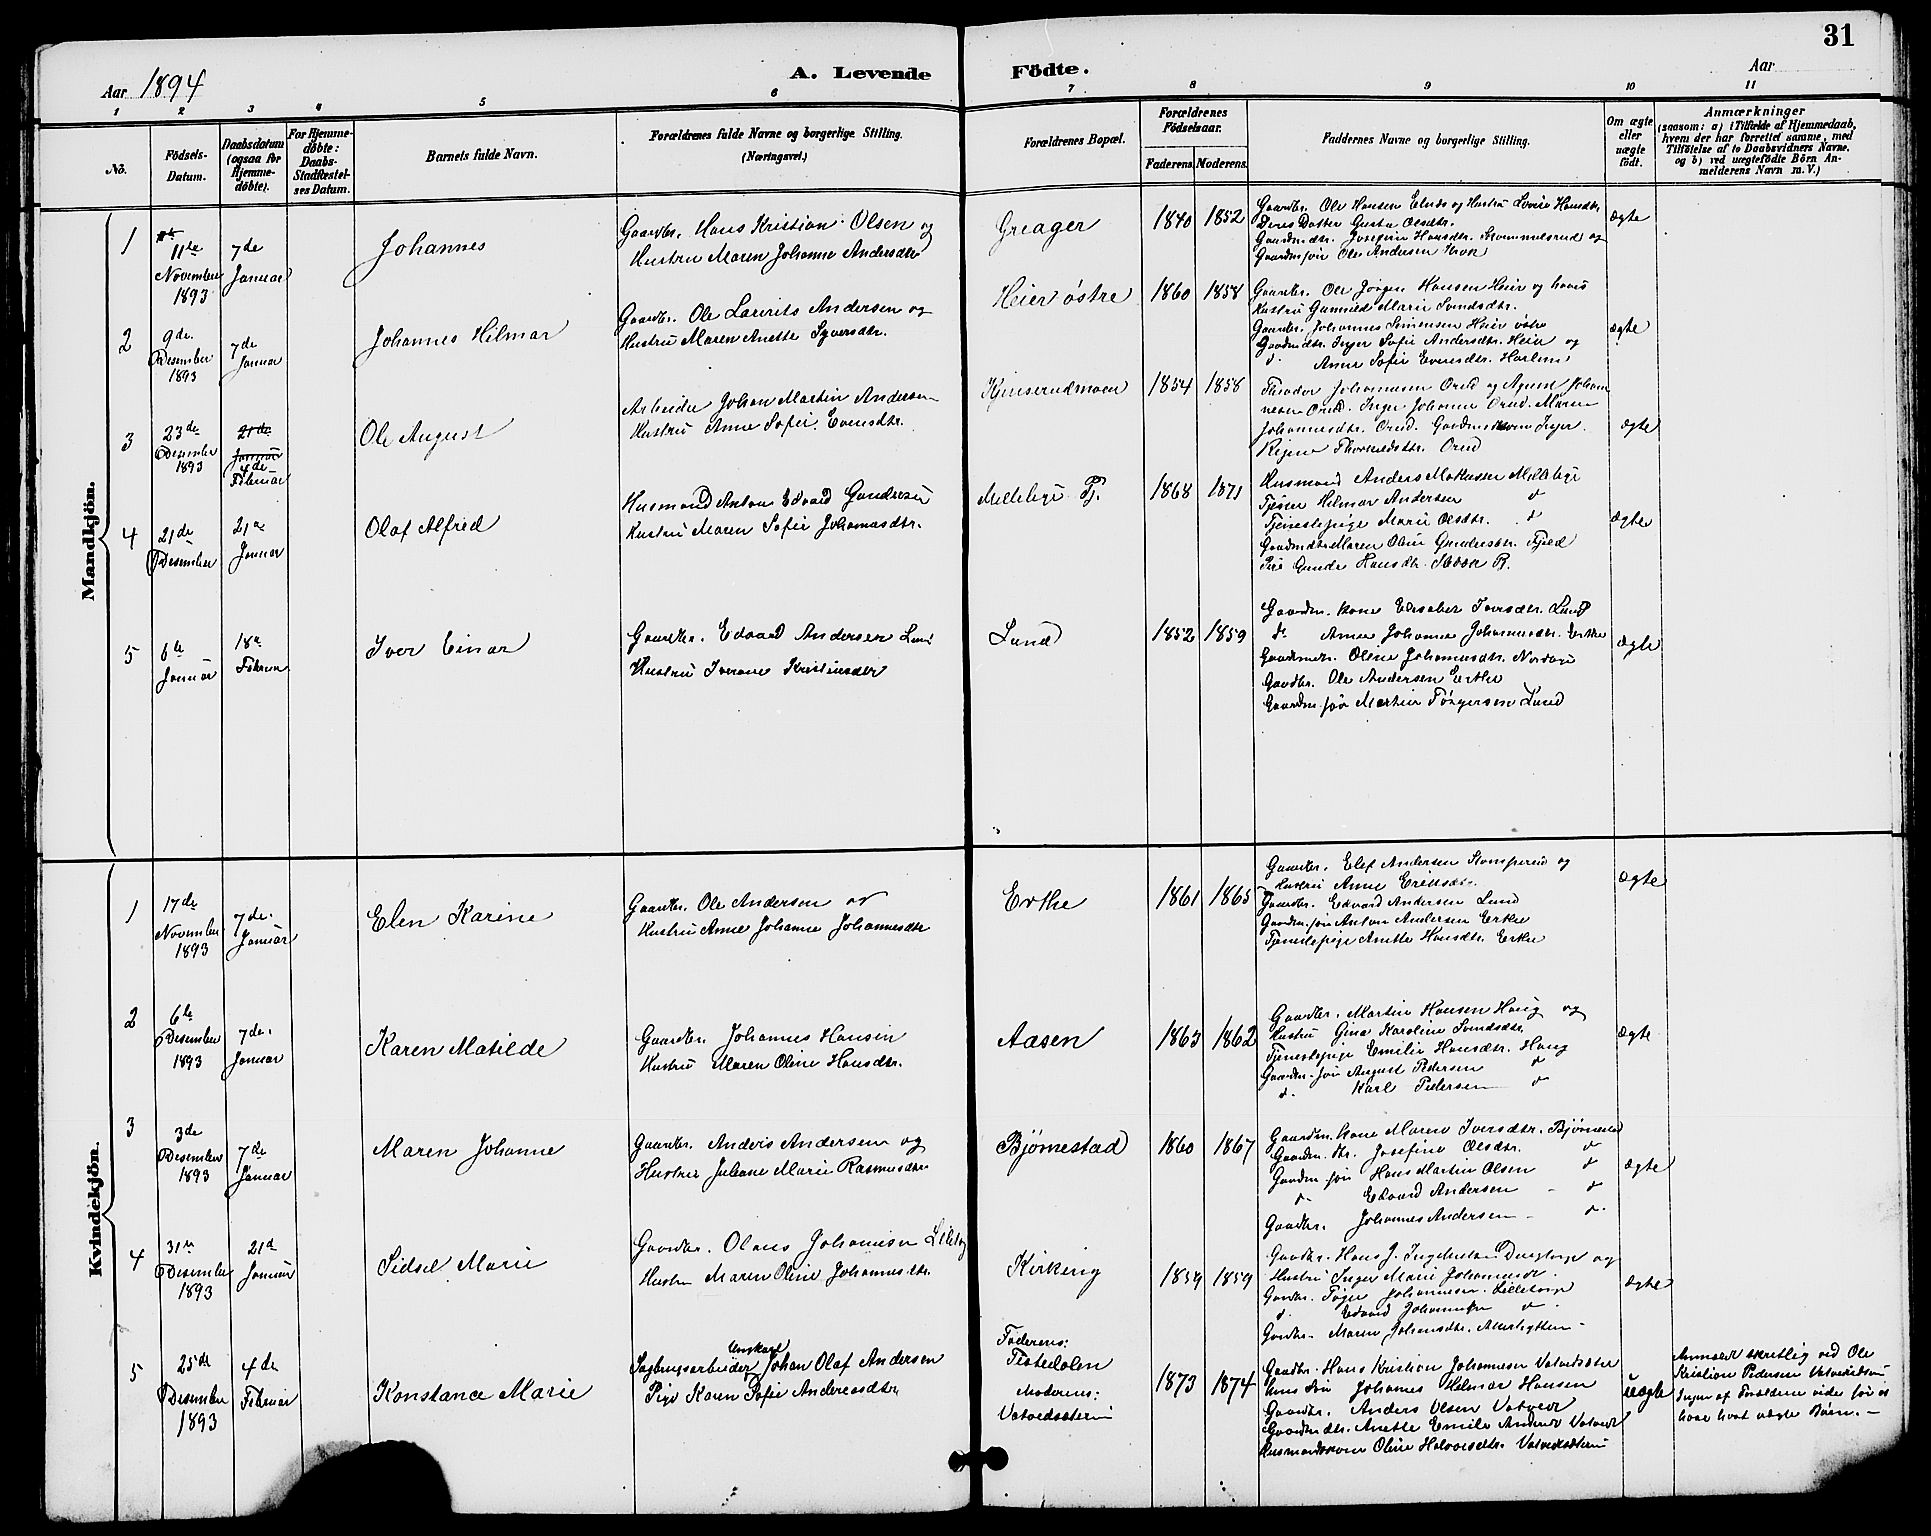 31
Aar 1894
A. Levende Födte.
Aar
1 2 3 4 5 6 7 8 9 10 11
No.
Födsels-
Datum.
Daabsdatum
(ogsaa for
Hjemme-
døbte).
For Hjemme-
döbte:
Daabs-
Stadfæstel-
ses Datum.
Barnets fulde Navn.
Forældrenes fulde Navne og borgerlige Stilling.
(Næringsvei.)
Forældrenes Bopæl.
Forældrenes
Födselsaar.
Faderens. Moderens.
Faddernes Navne og borgerlige Stilling.
Om ægte
eller
uægte
födt.
Anmærkninger
(saasom: a) i Tilfælde af Hjemmedaab,
hvem der har forrettet samme, med
Tilföielse af to Daabsvidners Navne.
og b) ved uægtefödte Börn An-
melderens Navn m. V.)
Mandkjön.
1
11te
November
1893
7de
Januar
Johannes
Gaardbr. Hans Kristian Olsen og
Hustru Maren Johanne Andersdtr
Greager
1840 1852
Gaardbr. Ole Hansen og Hustru Lovise Hansdtr
Deres Datter Gusta Olsdtr.
Gaardmdtr. Josefine Hansdtr. og
Gaardm. søn Ole Andersen
ægte
2
9de
Desember
1893
7de
Januar
Johannes Hilmar
Gaardbr. Ole Laurits Andersen og
Hustru Maren Anette Syversdtr.
Heier østre
1860 1858
Gaardbr. Ole Jørgen Hansen Heier og hans
Hustru Gunnild Marie
Gaardbr. Johannes Simensen Heier østre
Gaardmdtr. Inger Sofie Andersdtr. Heier og
d. Anne Sofie Evensdtr.
ægte
3
23de
Desember
1893
21de
Januar
4de
Februar
Ole August
Arbeider Johan Martin Andersen
Hustru Anne Sofie Evensdtr.
Kjinserudmoen
1854 1858
Theodor Johannesen Orud og
Orud. Inger Johanne Orud. Maren
Johannesdtr. Orud.
Orud
ægte
4
21de
Desember
21de
Januar
Olaf Alfred
Husmand Anton Edvard Gundersen
Hustru Maren Sofie Johannesdtr.
1868 1871
Husmand Anders
Hilmar Andersen d
Tjenestepige Marie Olsdtr. d
Gaardmdtr. Maren Oline Gundersdtr.
Pige Hansdtr.
ægte
5
6te
Januar
18de
Februar
Iver Einar
Gaardbr. Edvard Andersen Lund
Hustru Iverane Kristiansdtr
Lund
1852 1859
Gaardm. kone Elisabet Iversdtr. Lund
d. Anne Johanne Johannesdtr. Erthe
Gaardmdtr. Oline Johannesdtr.
Gaardbr. Ole Andersen Erthe
Gaardm. søn Martin Torgersen Lund
ægte
Kvindekjön.
1
17de
November
1893
7de
Januar
Elen Karine
Gaardbr. Ole Andersen og
Hustru Anne Johanne Johannesdtr
Erthe
1861 1865
Gaardbr. Elef Andersen og
Hustru Anne Eriksdtr.
Gaardbr. Edvard Andersen Lund
Gaardm. søn Anton Andersen Erthe
Tjenestepige Anette Hansdtr. Erthe
ægte
2
6te
Desember
1893
7de
Januar
Karen Matilde
Gaardbr. Johannes Hansen
Hustru Maren Oline Hansdtr.
Aasen
1863 1862
Gaardbr. Martin Hansen Haug og
Hustru Gina Karoline
Tjenestepige Emilie Hansdtr. Haug
Gaardm. søn August Pedersen d
d. Karl Pedersen d
ægte
3
3de
Desember
1893
7de
Januar
Maren Johanne
Gaardbr. Anders Andersen og
Hustru Juliane Marie Rasmusdtr
Bjørnestad
1860 1867
Gaardm. kone Maren Iversdtr. Bjørnestad
Gaardm. dtr. Josefine Olsdtr. d
Gaardm. søn Hans Martin Olsen d
d. Edvard Andersen d
Gaardbr. Johannes Andersen d.
ægte
4
31te
Desember
1893
21de
Januar
Sidsel Marie
Gaardbr. Olaus Johannesen
Hustru Maren Oline Johannesdtr.
Kirkeng
1859 1859
Gaardbr. Hans J. og
Hustru Inger Marie Johannesdtr.
Gaardbr. Johannesen. Lilletorp
d. Edvard Johannesen d.
Gaardbr. Maren Johansdtr.
ægte
5
25de
Desember
1893
4de
Februar
Konstance Marie
Ungkarl
Sagbrugsarbeider Johan Olaf Andersen
Pige Karen Sofie Andreasdtr
Faderens:
Tistedalen
Moderens:
Vatvedsæteren
1873 1874
Gaardbr. Hans Kristian Johannesen
Johannes Helmar Hansen
Gaardbr. Anders Olsen Vatvedt
Gaardmdtr. Anette Emilie Vatvedt
Husmandskone Oline Halvorsdtr. Vatvedsæteren
uægte
Anmeldt skriftlig ved Ole
Kristian Pedersen
Ingen af Forældrene vides før at
have havt uægte Børn.